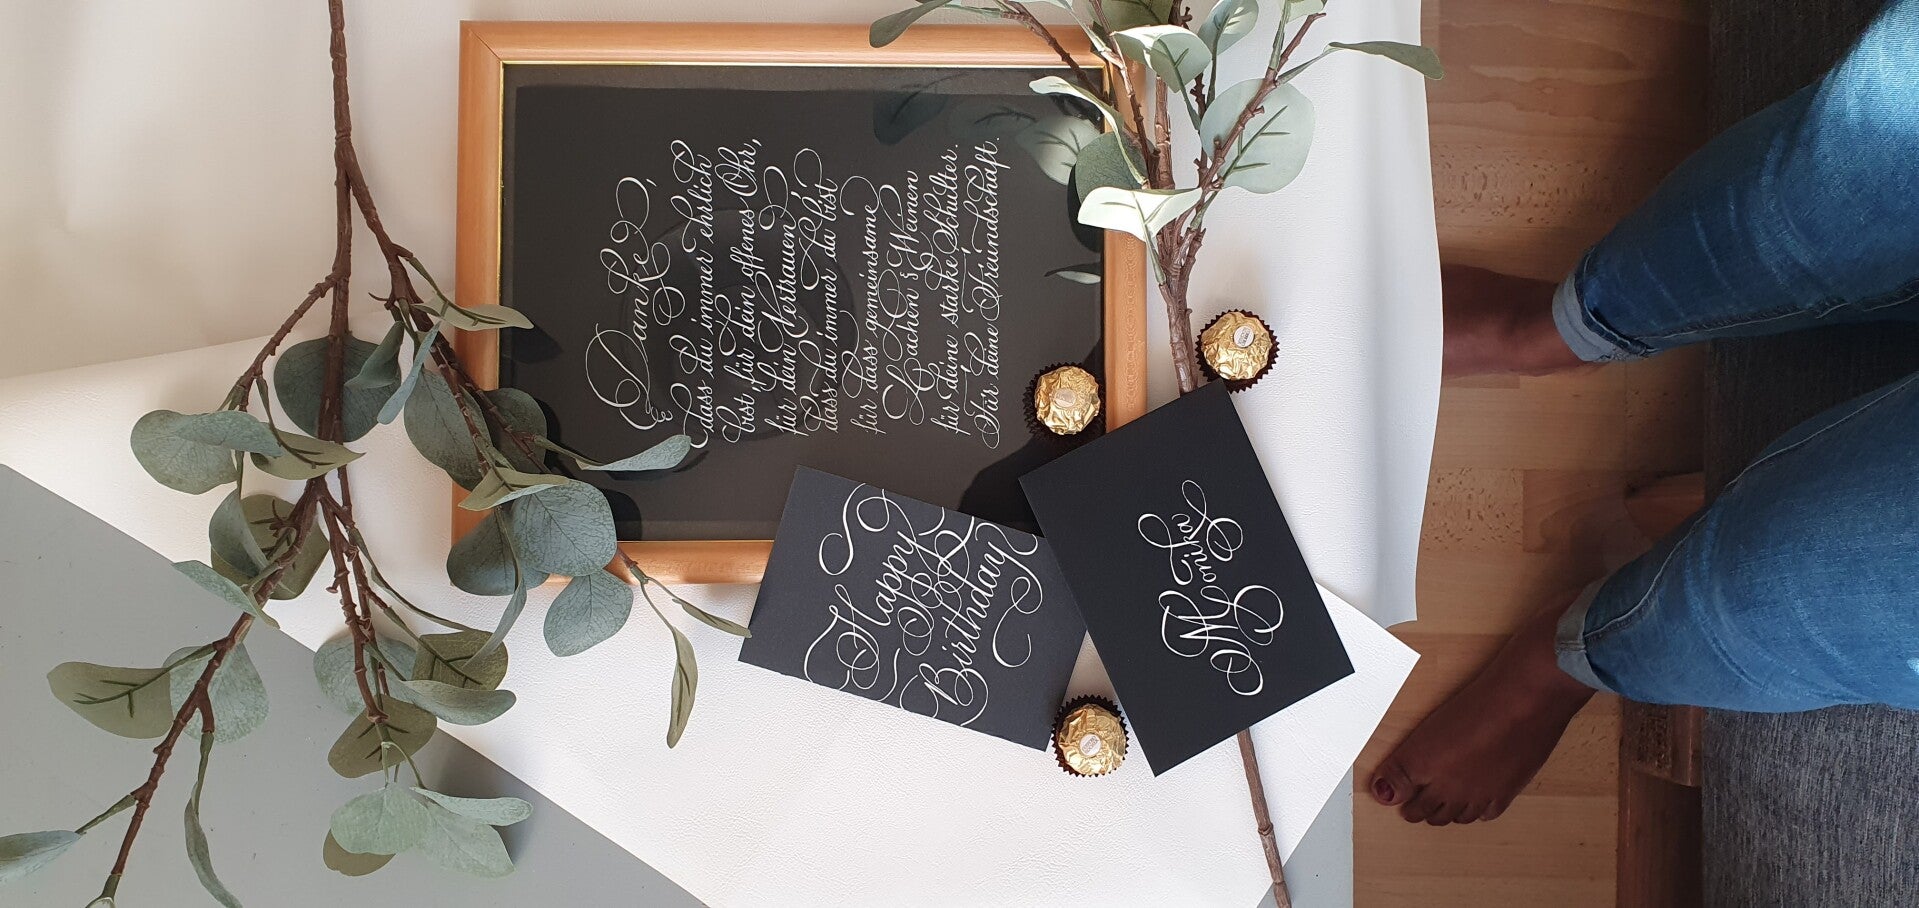 Danke,
dass du immer ehrlich
bist, für dein offenes Ohr,
für dein Vertrauen,
dass du immer da bist
für dass gemeinsame
Lachen & Weinen
für deine starke Schulter.
Für deine Freundschaft.
Happy
Birthday
Monika